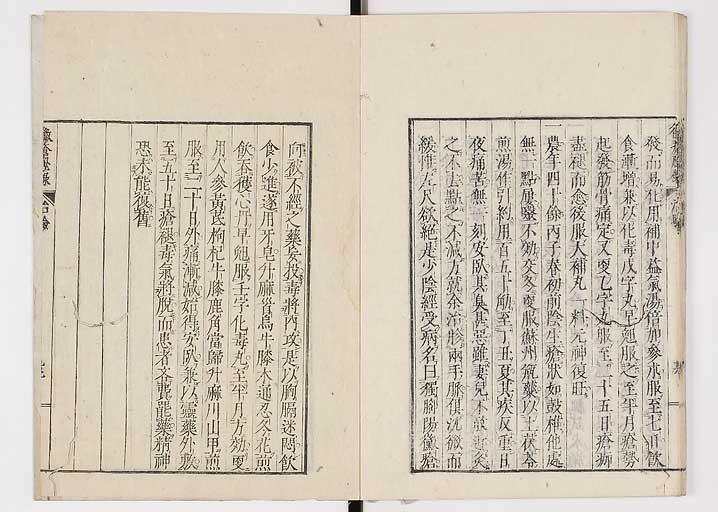 發而易化用補中益氣湯倍加參朮服至七日飲
食漸增兼以化毒戊字丸早晚服之至半月瘡勞
起發筋骨痛定又更乙字丸服至二十五日瘡痂
盡褪而愈後服大補丸一料元神復旺
一農年四十餘丙子春初前陰生瘡狀如鼓椎他處
無一點屢醫不効交冬更服蘇州
煎湯作引約用百五十觔至丁丑夏其疾反重日
夜痛苦無一刻安臥其臭甚惡雖妻兒不敢近灸
之不去點之不減方就余治胗兩手脈俱沈微而
緩惟左尺欲絕是少陰經受病名曰獨腳陽黴瘡
向被不經之藥妄投毒將內攻是以胸膈迷悶飲
食少進遂用牙皂升麻首烏牛膝木通忍冬花煎
飲吞護心丹早晚服壬字化毒丸至半月方効更
用人參黃芪枸杞牛膝鹿角當歸升麻川山甲煎
服至二十日外痛漸減始得安臥兼以靈藥外敷
至五十日瘡褪毒氣將脫而患者吝費罷藥精神
恐未能復舊